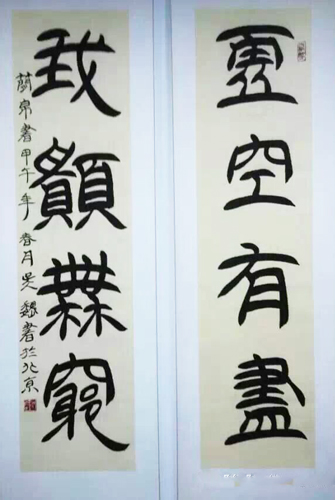 虛空有盡
我願無窮
簡帛書甲午年春月吴魏書於北京